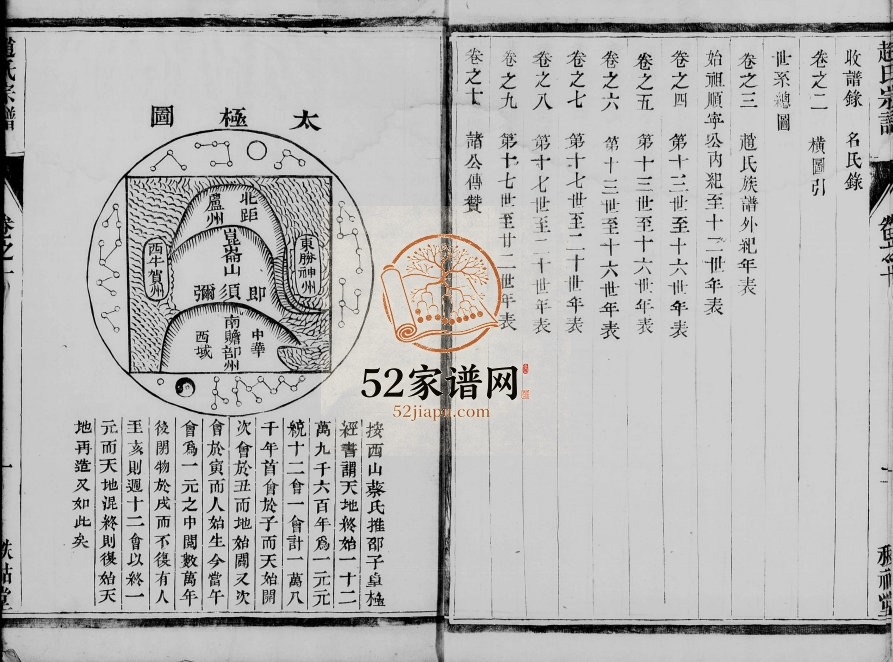 趙氏宗譜
收譜錄 名氏錄
卷之二 橫圖引
世系總圖
卷之三 趙氏族譜外紀年表
始祖順寧公內紀至十二世年表
卷之四 第十三世至十六世年表
卷之五 第十三世至十六世年表
卷之六 第十三世至十六世年表
卷之七 第十七世至二十世年表
卷之八 第十七世至二十世年表
卷之九 第十七世至廿二世年表
卷之十 諸公傳贊
太極圖
北距
廬州
崑崙山
即須彌
東勝神州
西牛賀州
南贍部州
中華
西域
按西山蔡氏推邵子皇極
經書謂天地終始一十二
萬九千六百年爲一元元
統十二會一會計一萬八
千年首會於子而天始開
次會於丑而地始闢又次
會於寅而人始生今當午
會爲一元之中閱數萬年
後閉物於戌而不復有人
至亥則週十二會以終一
元而天地混終則復始天
地再造又如此矣
趙氏宗譜
卷之一
一
52家谱网
52jiapu.com